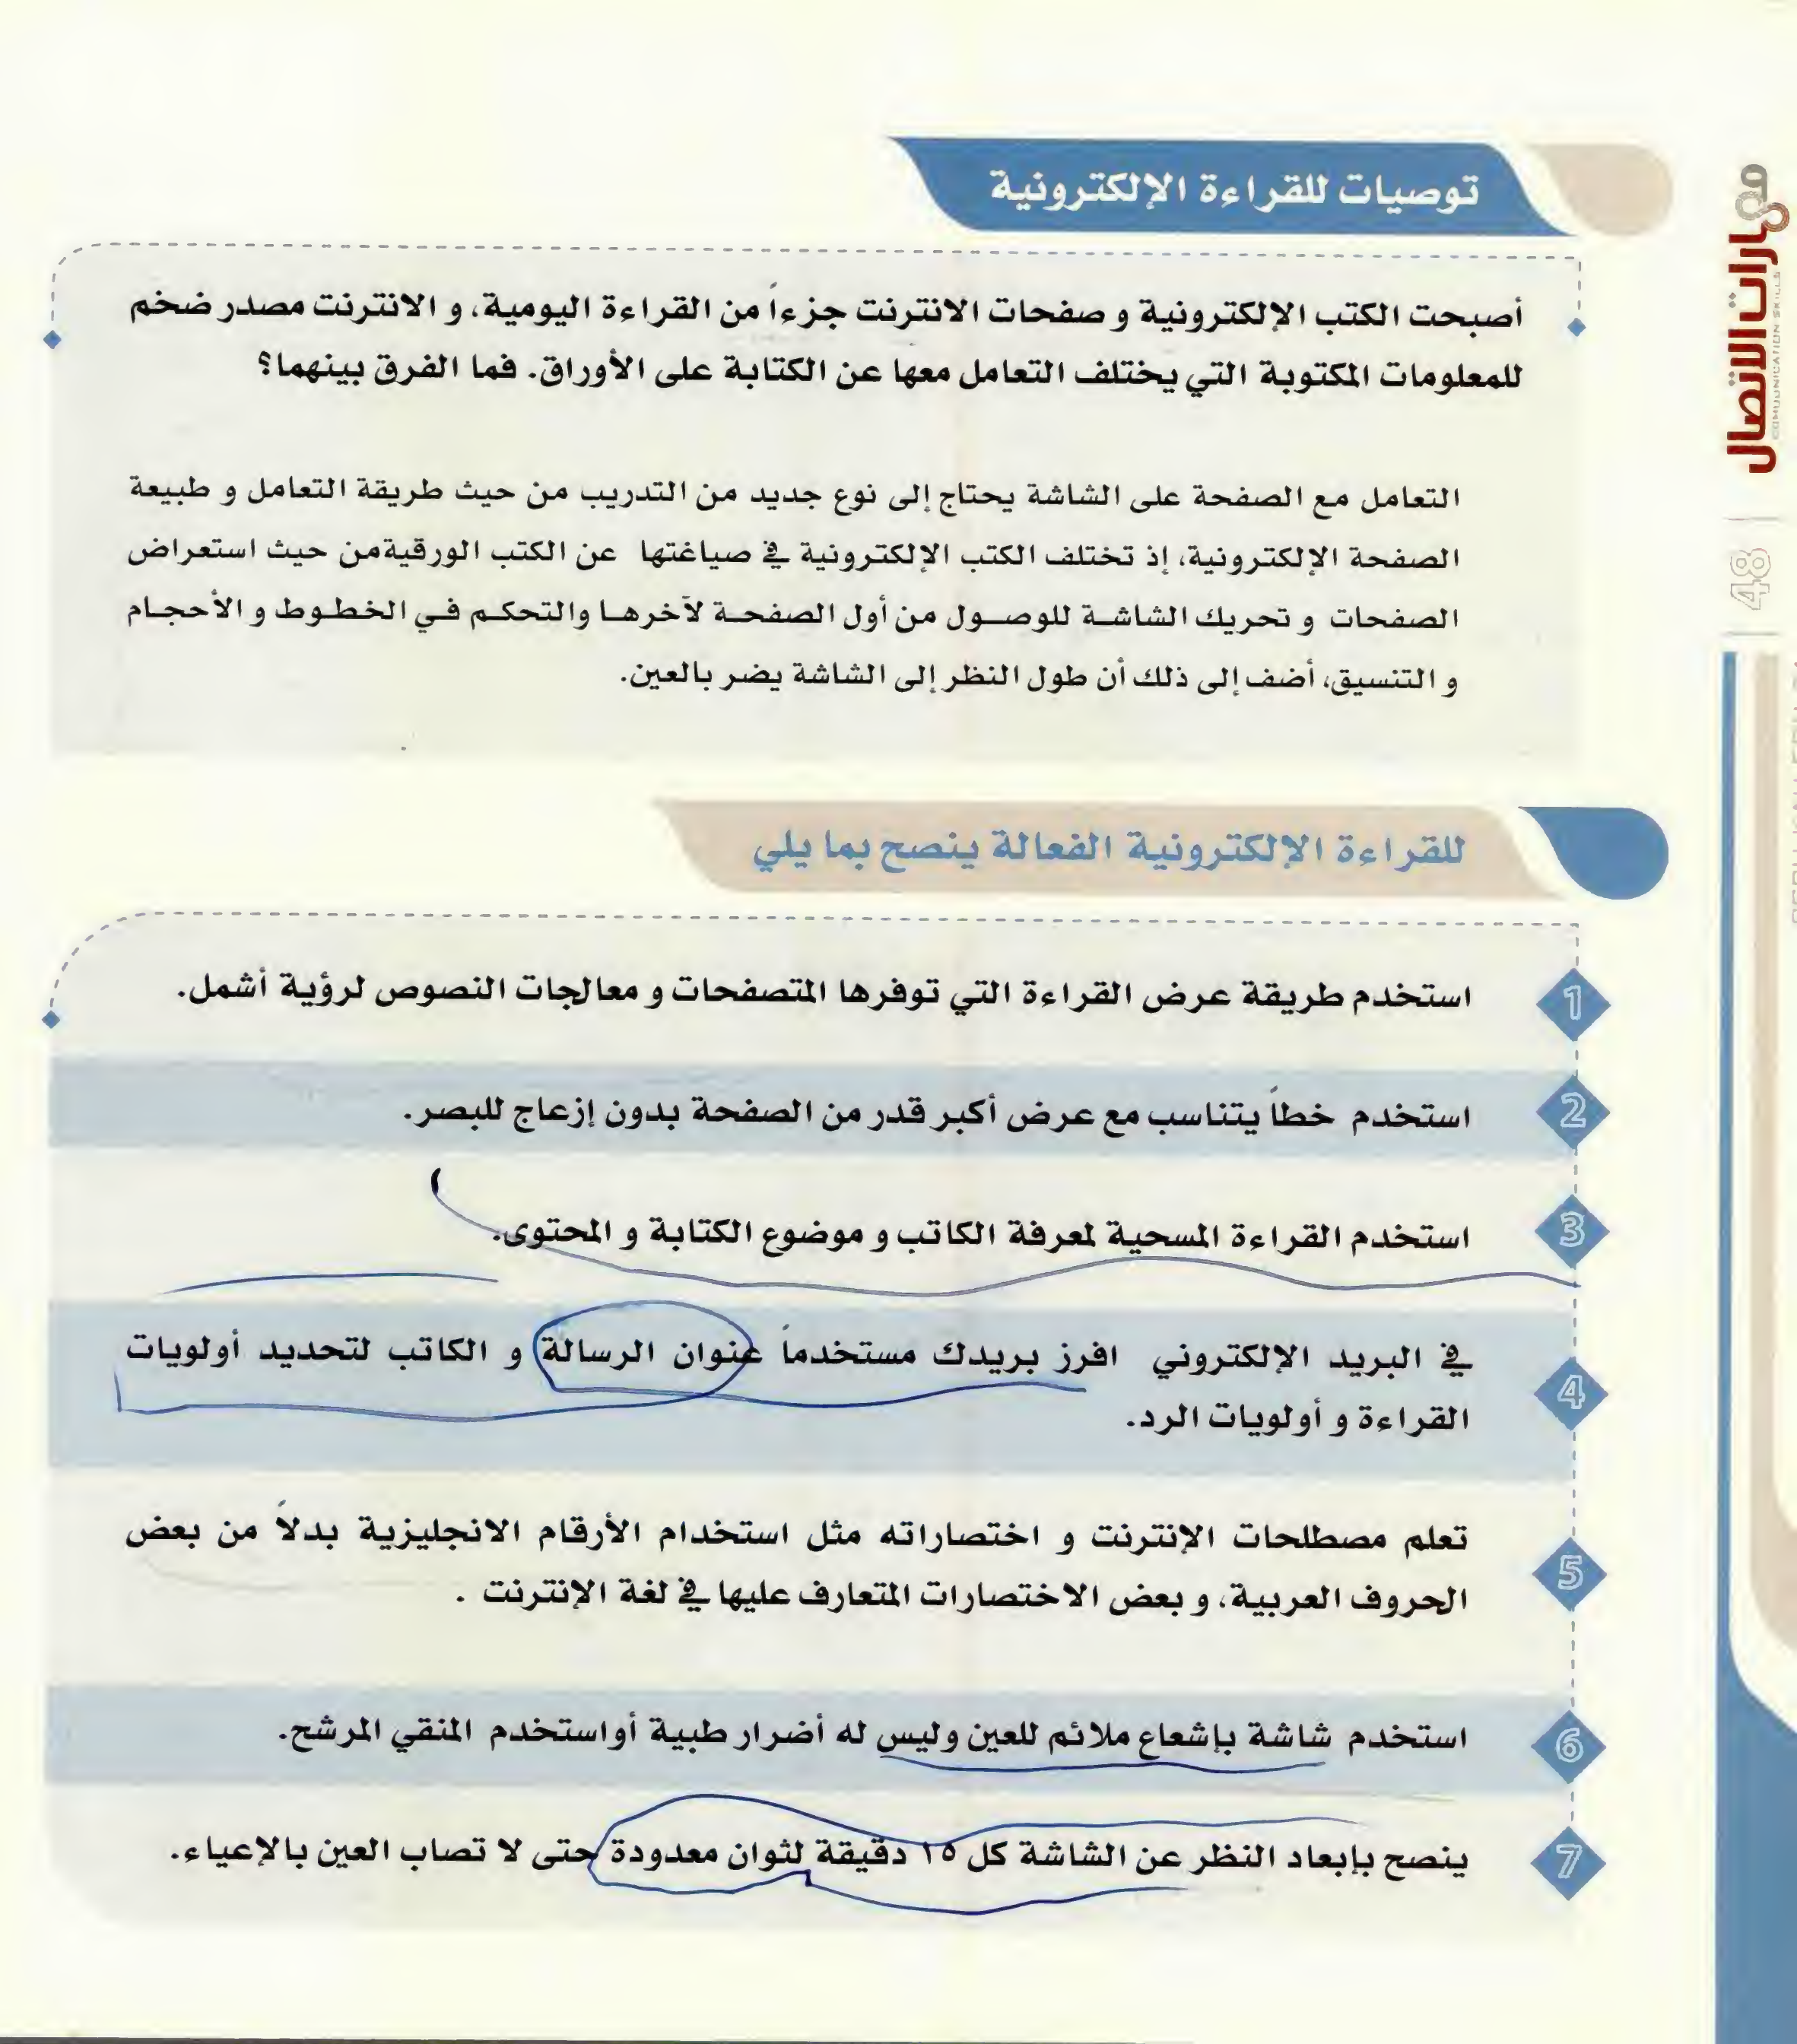 توصيات للقراءة الإلكترونية
أصبحت الكتب الإلكترونية و صفحات الانترنت جزءاً من القراءة اليومية، و الانترنت مصدر ضخم
للمعلومات المكتوبة التي يختلف التعامل معها عن الكتابة على الأوراق. فما الفرق بينهما؟
التعامل مع الصفحة على الشاشة يحتاج إلى نوع جديد من التدريب من حيث طريقة التعامل و طبيعة
الصفحة الإلكترونية، إذ تختلف الكتب الإلكترونية في صياغتها عن الكتب الورقية من حيث استعراض
الصفحات و تحريك الشاشة للوصول من أول الصفحة لآخرها والتحكم في الخطوط و الأحجام
و التنسيق، أضف إلى ذلك أن طول النظر إلى الشاشة يضر بالعين.
للقراءة الإلكترونية الفعالة ينصح بما يلي
1 استخدم طريقة عرض القراءة التي توفرها المتصفحات و معالجات النصوص لرؤية أشمل.
2 استخدم خطاً يتناسب مع عرض أكبر قدر من الصفحة بدون إزعاج للبصر.
3 استخدم القراءة المسحية لمعرفة الكاتب و موضوع الكتابة و المحتوى.
4 في البريد الإلكتروني افرز بريدك مستخدماً عنوان الرسالة و الكاتب لتحديد أولويات
القراءة و أولويات الرد.
5 تعلم مصطلحات الإنترنت و اختصاراته مثل استخدام الأرقام الانجليزية بدلاً من بعض
الحروف العربية، و بعض الاختصارات المتعارف عليها في لغة الإنترنت .
6 استخدم شاشة بإشعاع ملائم للعين وليس له أضرار طبية أواستخدم المنقي المرشح.
7 ينصح بإبعاد النظر عن الشاشة كل ١٥ دقيقة لثوان معدودة حتى لا تصاب العين بالإعياء.
مهارات الاتصال
COMMUNICATION SKILLS
48